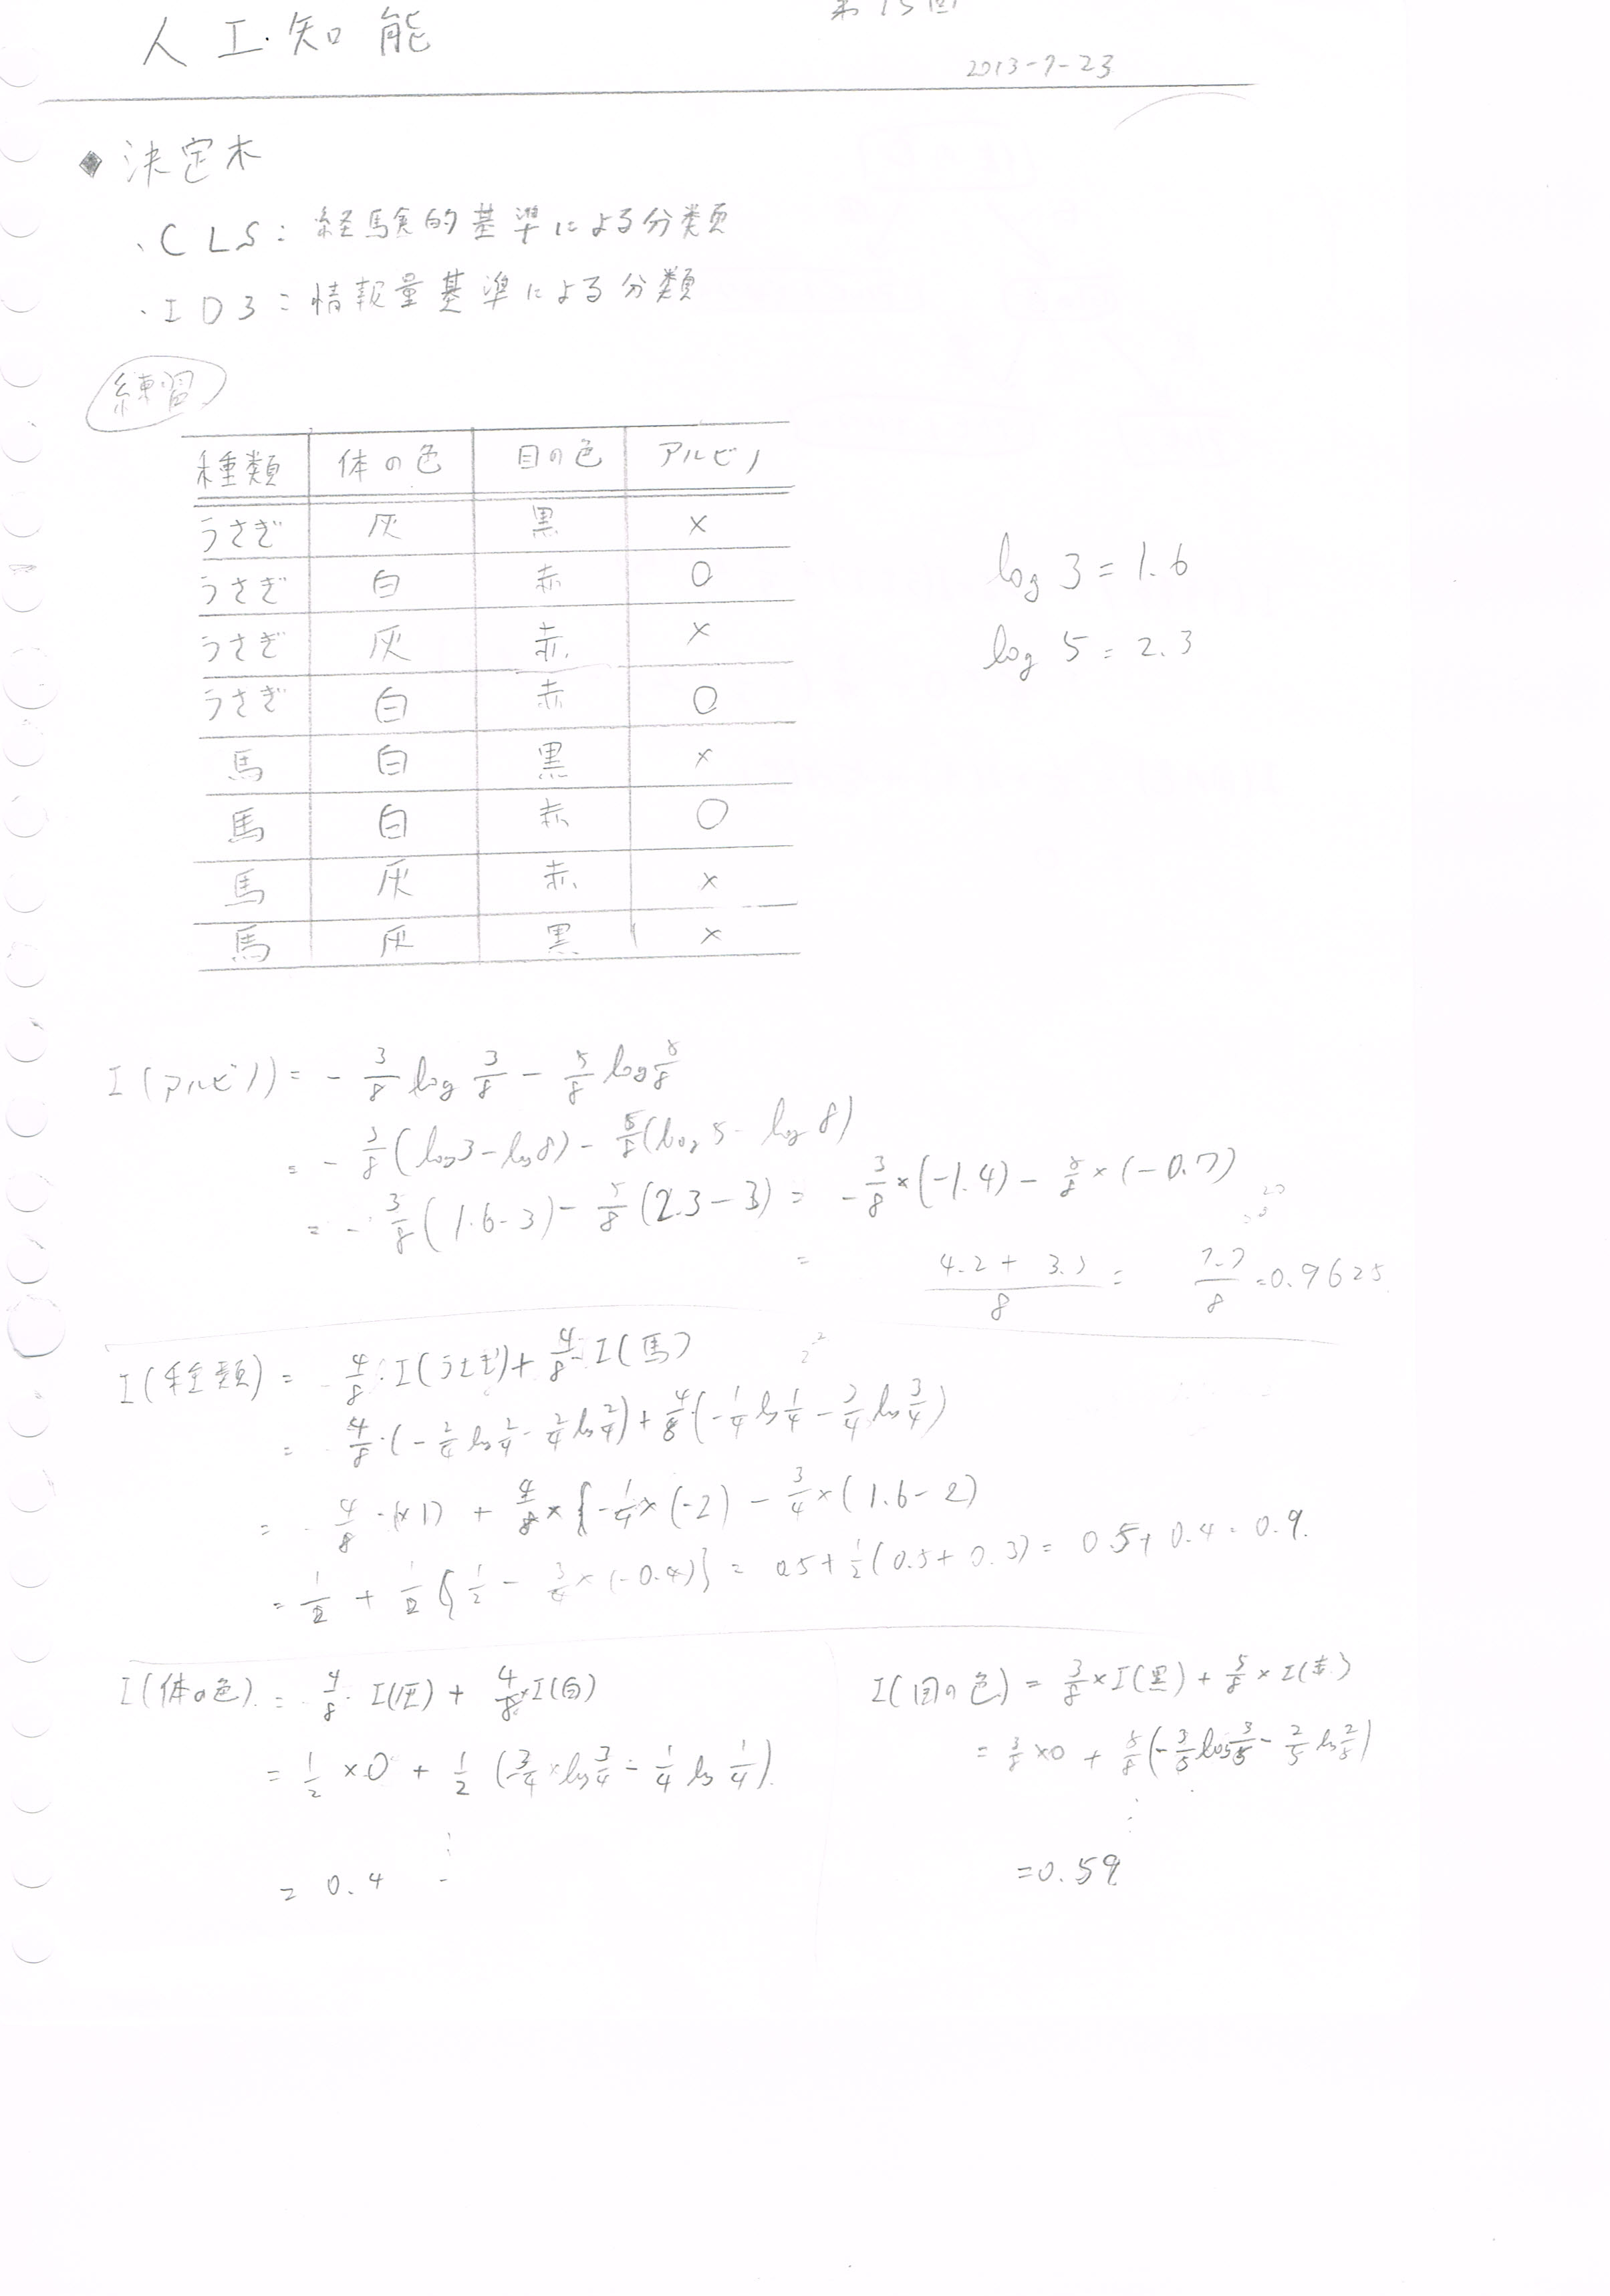 人工知能
第15回
2013-7-23
◆ 決定木
・CLS: 経験的基準による分類
・ID3: 情報量基準による分類
練習
種類 体の色 目の色 アルビノ
うさぎ 灰 黒 ×
うさぎ 白 赤 ○
うさぎ 灰 赤 ×
うさぎ 白 赤 ○
馬 白 黒 ×
馬 白 赤 ○
馬 灰 赤 ×
馬 灰 黒 ×
log 3 = 1.6
log 5 = 2.3
I(アルビノ) = - 3/8 log 3/8 - 5/8 log 5/8
= - 3/8 (log3 - log8) - 5/8 (log5 - log8)
= - 3/8 (1.6-3) - 5/8 (2.3-3) = - 3/8 × (-1.4) - 5/8 × (-0.7)
= (4.2 + 3.5)/8 = 7.7/8 = 0.9625
I(種類) = 4/8・I(うさぎ) + 4/8・I(馬)
= 4/8・(- 2/4 log 2/4 - 2/4 log 2/4) + 4/8 (- 1/4 log 1/4 - 3/4 log 3/4)
= 4/8・(×1) + 4/8 × {- 1/4 × (-2) - 3/4 × (1.6-2)
= 1/2 + 1/2 { 1/2 - 3/4 × (-0.4)} = 0.5 + 1/2 (0.5+0.3) = 0.5 + 0.4 = 0.9.
I(体の色) = 4/8・I(灰) + 4/8 × I(白)
= 1/2 × 0 + 1/2 (- 3/4 × log 3/4 - 1/4 log 1/4)
⋮
= 0.4
I(目の色) = 3/8 × I(黒) + 5/8 × I(赤)
= 3/8 × 0 + 5/8 (- 3/5 log 3/5 - 2/5 log 2/5)
⋮
= 0.59